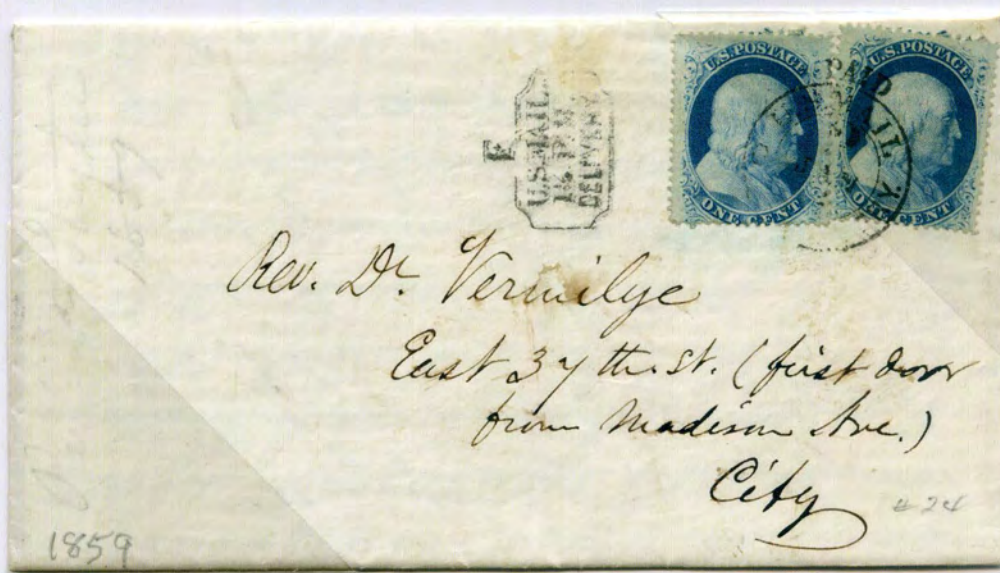 U.S. POSTAGE
ONE CENT
U.S. POSTAGE
ONE CENT
PAID
F
U.S. MAIL
DELIVERY
Rev. Dr. Vermilye
East 37th. St. (first door
from Madison Ave.)
City
1859
# 24